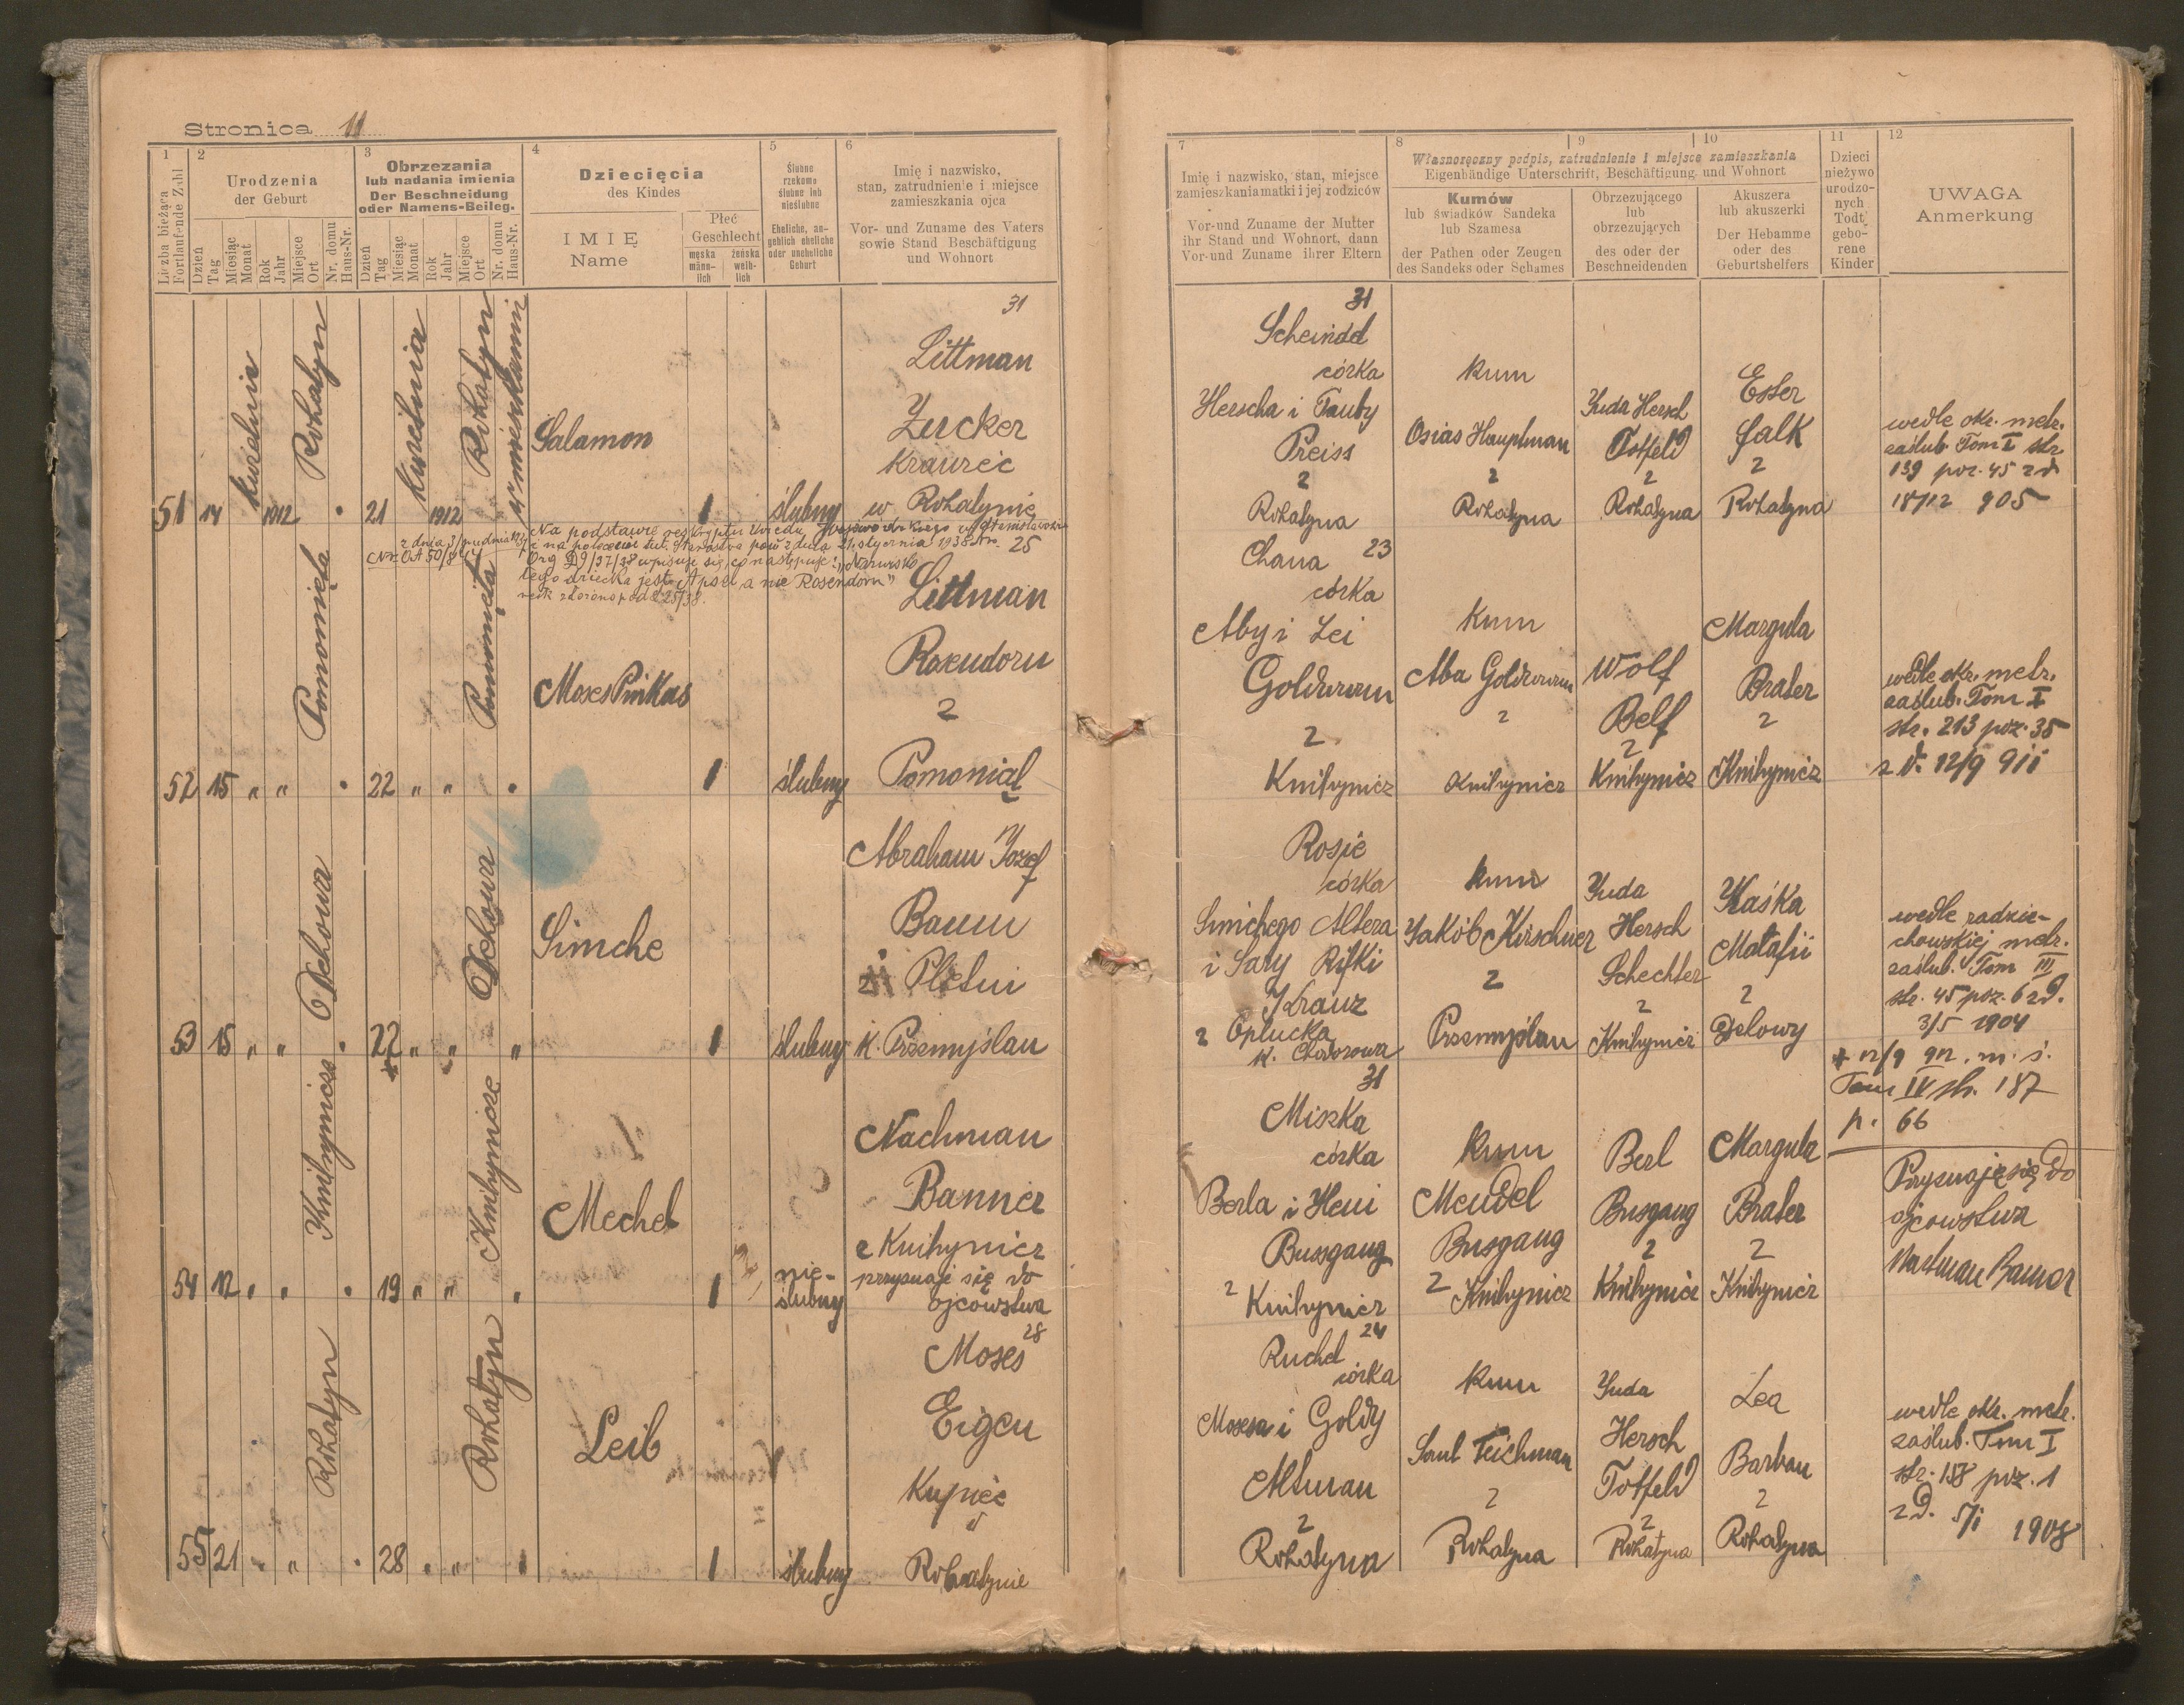 Stronica 11
1
2
3
4
5
6
Liczba bieżąca
Fortlaufende Zahl
Urodzenia
der Geburt
Dzień
Tag
Miesiąc
Monat
Rok
Jahr
Miejsce
Ort
Nr. domu
Haus-Nr.
Obrzezania
lub nadania imienia
Der Beschneidung
oder Namens-Beileg.
Dzień
Tag
Miesiąc
Monat
Rok
Jahr
Miejsce
Ort
Nr. domu
Haus-Nr.
Dziecięcia
des Kindes
IMIĘ
Name
Płeć
Geschlecht
męska
männ-
lich
żeńska
weib-
lich
Ślubne
rzekomo
ślubne lub
nieślubne
Eheliche, an-
geblich eheliche
oder uneheliche
Geburt
Imię i nazwisko,
stan, zatrudnienie i miejsce
zamieszkania ojca
Vor- und Zuname des Vaters
sowie Stand Beschäftigung
und Wohnort
7
8
9
10
11
12
Imię i nazwisko, stan, miejsce
zamieszkania matki i jej rodziców
Vor-und Zuname der Mutter
ihr Stand und Wohnort, dann
Vor-und Zuname ihrer Eltern
Własnoręczny podpis, zatrudnienie i miejsce zamieszkania
Eigenhändige Unterschrift, Beschäftigung und Wohnort
Kumów
lub świadków Sandeka
lub Szamesa
der Pathen oder Zeugen
des Sandeks oder Schames
Obrzezującego
lub
obrzezujących
des oder der
Beschneidenden
Akuszera
lub akuszerki
Der Hebamme
oder des
Geburtshelfers
Dzieci
nieżywo
urodzo-
nych
Todt
gebo-
rene
Kinder
UWAGA
Anmerkung
51 14 kwietnia 1912 Rohatyn
21 kwietnia 1912 Rohatyn
Salamon
1
ślubny
31
Littman
Zucker
krawiec
w Rohatynie
31
Scheindel
córka
Herscha i Tauby
Preiss
z
Rohatyna
kum
Osias Hauptman
z
Rohatyna
Juda Hersch
Totfeld
z
Rohatyna
Ester
Falk
z
Rohatyna
wedle okr. metr.
zaślub. Tom I str
139 poz. 45 z d
18/12 905
Na podstawie reskryptu Urzędu Wojewódzkiego w Stanisławowie
z dnia 3/grudnia
i na polecenie tut. Starostwa pow z dnia 21. stycznia 1938 Nr.
Org D9/37/38 wpisuje się co następuje: "Nazwisko
tego dziecka jest Apsel a nie Rosendorn"
52 15 " " Pomonięta
22 " " Pomonięta
Moses Pinkas
1
ślubny
25
Littman
Rozendorn
z
Pomoniąt
Chana 23
córka
Aby i Lei
Goldwurm
z
Knihynicz
kum
Aba Goldwurm
z
Knihynicz
Wolf
Belf
z
Knihynicz
Margula
Brater
z
Knihynicz
wedle okr. metr.
zaślub. Tom I
str. 213 poz. 35
z d. 12/9 911
53 15 " " Pschowa
22 " " Pschowa
Simche
1
ślubny
Abraham Jozef
Baum
z Pletni
k. Przemyślan
Rosie
córka
Simchego Altera
i Sary Rifki
Kranz
z Oplucka
k. Chodorowa
kum
Jakób Kirschner
z
Przemyślan
Juda
Hersch
Schechter
z
Knihynicz
Kaśka
Matafii
z
wedle radzie-
chowskiej metr.
zaślub. Tom III
str. 45 poz. 6 z d.
3/5 1904
+ 12/9 912. m. ś.
Tom IV str. 187
p. 66
54 12 " " Knihynicze
19 " " Knihynicze
Mechel
1
nie-
ślubny
Nachman
Banner
z Knihynicz
przyznaje się do
ojcowstwa
31
Miszka
córka
Berla i Heni
Busgang
z Knihynicz
kum
Mendel
Busgang
z Knihynicz
Berl
Busgang
z
Knihynicz
Margula
Brater
z
Knihynicz
Przyznaję się do
ojcowstwa
55 21 " " Rohatyn
28 " " Rohatyn
Leib
1
ślubny
28
Moses
Eigen
Kupiec
w
Rohatynie
24
Ruchel
córka
Mosesa i Goldy
Altman
z
Rohatyna
kum
Saul Teichman
z
Rohatyna
Juda
Hersch
Totfeld
z
Rohatyna
Lea
Barban
z
Rohatyna
wedle okr. metr.
zaślub. Tom I
str. 158 poz. 1
z d. 5/1 1908